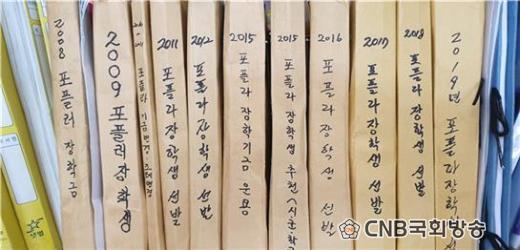 2008 포플러 장학금
2009 포플러장학생
포플러 기금변경·조례변경
2011 포플러장학생 선발
2012 포플러장학생 선발
2015 포플러 장학기금 운용
2015 포플러 장학생 추천
2016 포플러 장학생 선발
2017 포플러장학생 선발
2018 포플러장학생 선발
2019년 포플러장학생
CNB국회방송